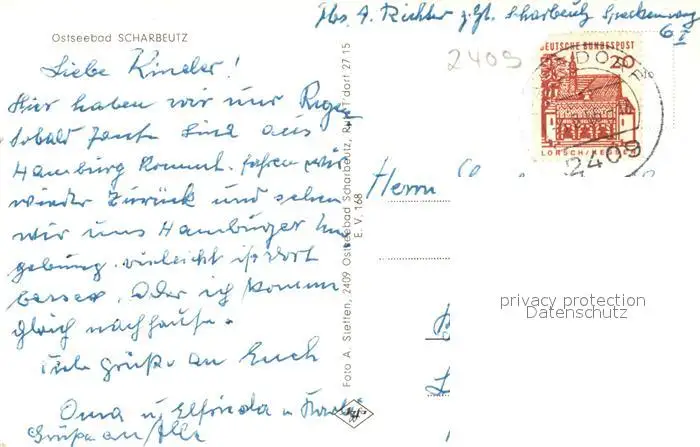 Abs. A. Richter z. Zt. Scharbeutz
Ostseebad SCHARBEUTZ
2409
DEUTSCHE BUNDESPOST
20
LORSCH/HESSEN
2409
Liebe Kinder!
Hier haben wir nur Regen
sobald sind aus
Hamburg kommt. fahren wir
wieder zurück und sehen
wir uns Hamburger Um
gebung. vielleicht ist dort
besser. Oder ich komm
gleich nachhause.
Viele grüße an Euch
Oma u. Elfrieda u.
Grüße an Alle
Foto A. Steffen, 2409 Ostseebad Scharbeutz, Ruf T'dorf 27 15
E. V. 168
Herrn
privacy protection
Datenschutz